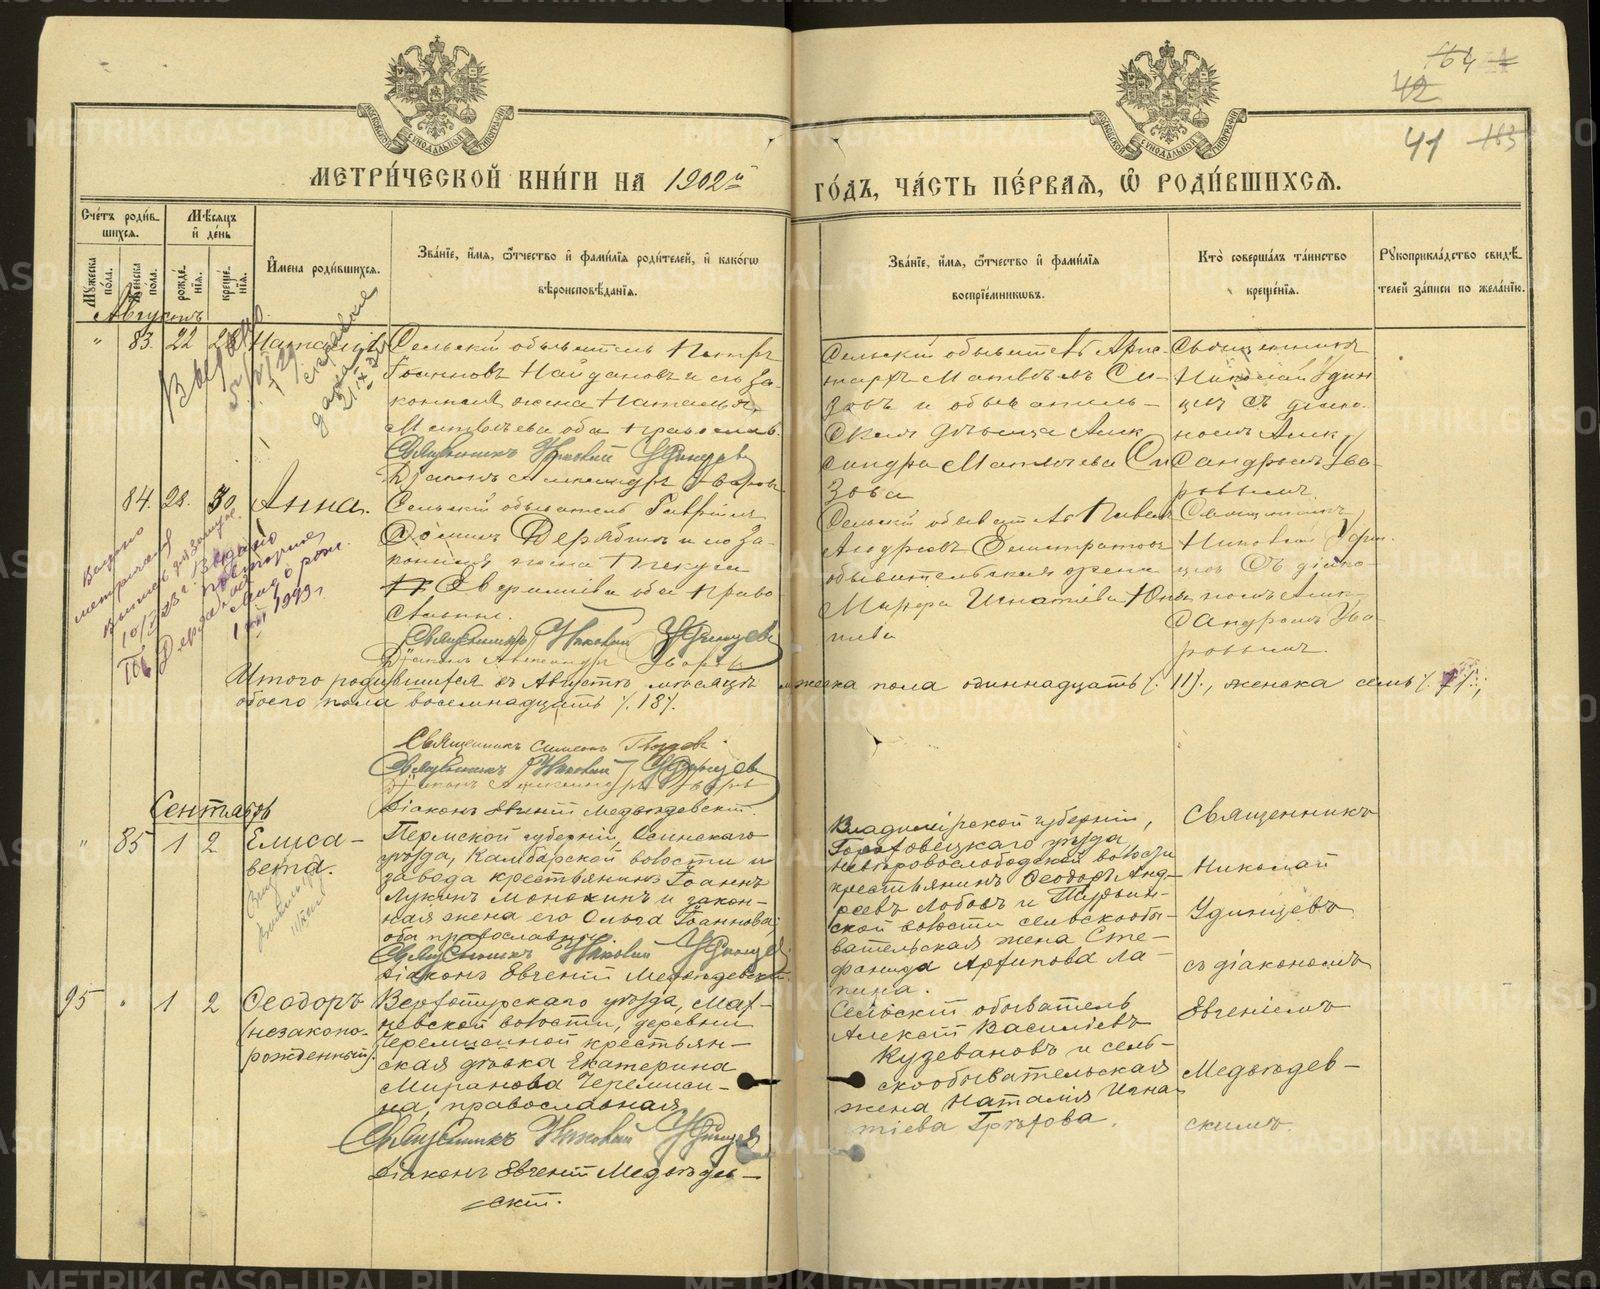 164
42
41 163
МЕТРИ́ЧЕСКОЙ КНИ́ГИ НА 1902й ГО́ДЪ, ЧА́СТЬ ПЕ́РВАЯ, Ѡ҆ РОДИ́ВШИХСЯ.
Сче́тъ роди́в-
шихся.
Мꙋжеска по́ла.
Же́нска по́ла.
Мѣ́сяцъ
и҆ де́нь
рожде́-
нїя.
креще́-
нїя.
И҆мена роди́вшихся.
Зва́нїе, и҆́мя, ѻ҆́тчество и҆ фами́лїя роди́телей, и҆ како́гѡ
вѣроисповѣ́данїя.
Зва́нїе, и҆́мя, ѻ҆́тчество и҆ фами́лїя
воспрїе́мникѡвъ.
Кто̀ соверша́лъ та́инство
креще́нїя.
Рꙋкоприкла́дство свидѣ́-
телей за́писи по жела́нїю.
Августъ
" 83. 22 Наталія
Сельскій обыватель Петръ
Іоанновъ Найдановъ и его за-
конная жена Наталья
Матвѣева оба православ.
Священникъ Николай Удинцевъ
Діаконъ Александръ Уваровъ
Сельскій обыватель Арис-
тархъ Матвѣевъ Си-
зовъ и обыватель-
ская дѣвица Алек
сандра Матвѣева Си
зова
Священникъ
Николай Удин
цевъ съ діако-
номъ Алек
сандромъ Ува-
ровымъ.
84. 28. 30 Анна.
Сельскій обыватель Гавріилъ
Ѳоминъ Дерябинъ и его за-
конная жена Текуса
Северилнѣва оба право
славны.
Священникъ Николай Удинцевъ
Діаконъ Александръ Уваровъ
Сельскій обыватель Павелъ
Андреевъ Елистратовъ
обывательская жена
Марѳа Игнатіева
Священникъ
Николай Удин
цевъ съ діако-
номъ Алек-
сандромъ Ува-
ровымъ.
Выдано
метрическая
Выдано
повторная
1949 г
Итого родившихся въ Августѣ мѣсяцѣ мужеска пола одиннадцать /. 11/., женска семь /. 7/.,
обоего пола восемнадцать /. 18/.
Священникъ Симеонъ
Священникъ Николай Удинцевъ
Діаконъ Александръ Уваровъ
Діаконъ Евгеній Медвѣдевскій.
Сентябрь
" 85 1 2 Елиса-
вета.
Пермской губерніи, Осинскаго
уѣзда, Камбарской волости и
завода крестьянинъ Іоаннъ
Лукинъ Монахинъ и закон-
ная жена его Ольга Іоаннова;
оба православные
Священникъ Николай Удинцевъ
Діаконъ Евгеній Медвѣдевскій.
Владимірской губерніи,
Гороховецкаго уѣзда,
волости
крестьянинъ Ѳеодоръ Анд-
реевъ Лобовъ и
ской волости сельскообы-
вательская жена Сте-
фанида Архипова Ла-
пина.
Священникъ
Николай
Удинцевъ
съ діакономъ
Евгеніемъ
Медвѣдев-
скимъ.
95 " 1 2 Ѳеодоръ
(незаконо-
рожденный).
Верхотурскаго уѣзда, Мах-
невской волости, деревни
Черемисиной крестьян-
ская дѣвка Екатерина
Миранова Черемиси-
на, православная
Священникъ Николай Удинцевъ
Діаконъ Евгеній Медвѣдев-
скій.
Сельскій обыватель
Алексѣй Василіевъ
Кузевановъ и сель-
скообывательская
жена Наталія Игна-
тіева Грѣхова.